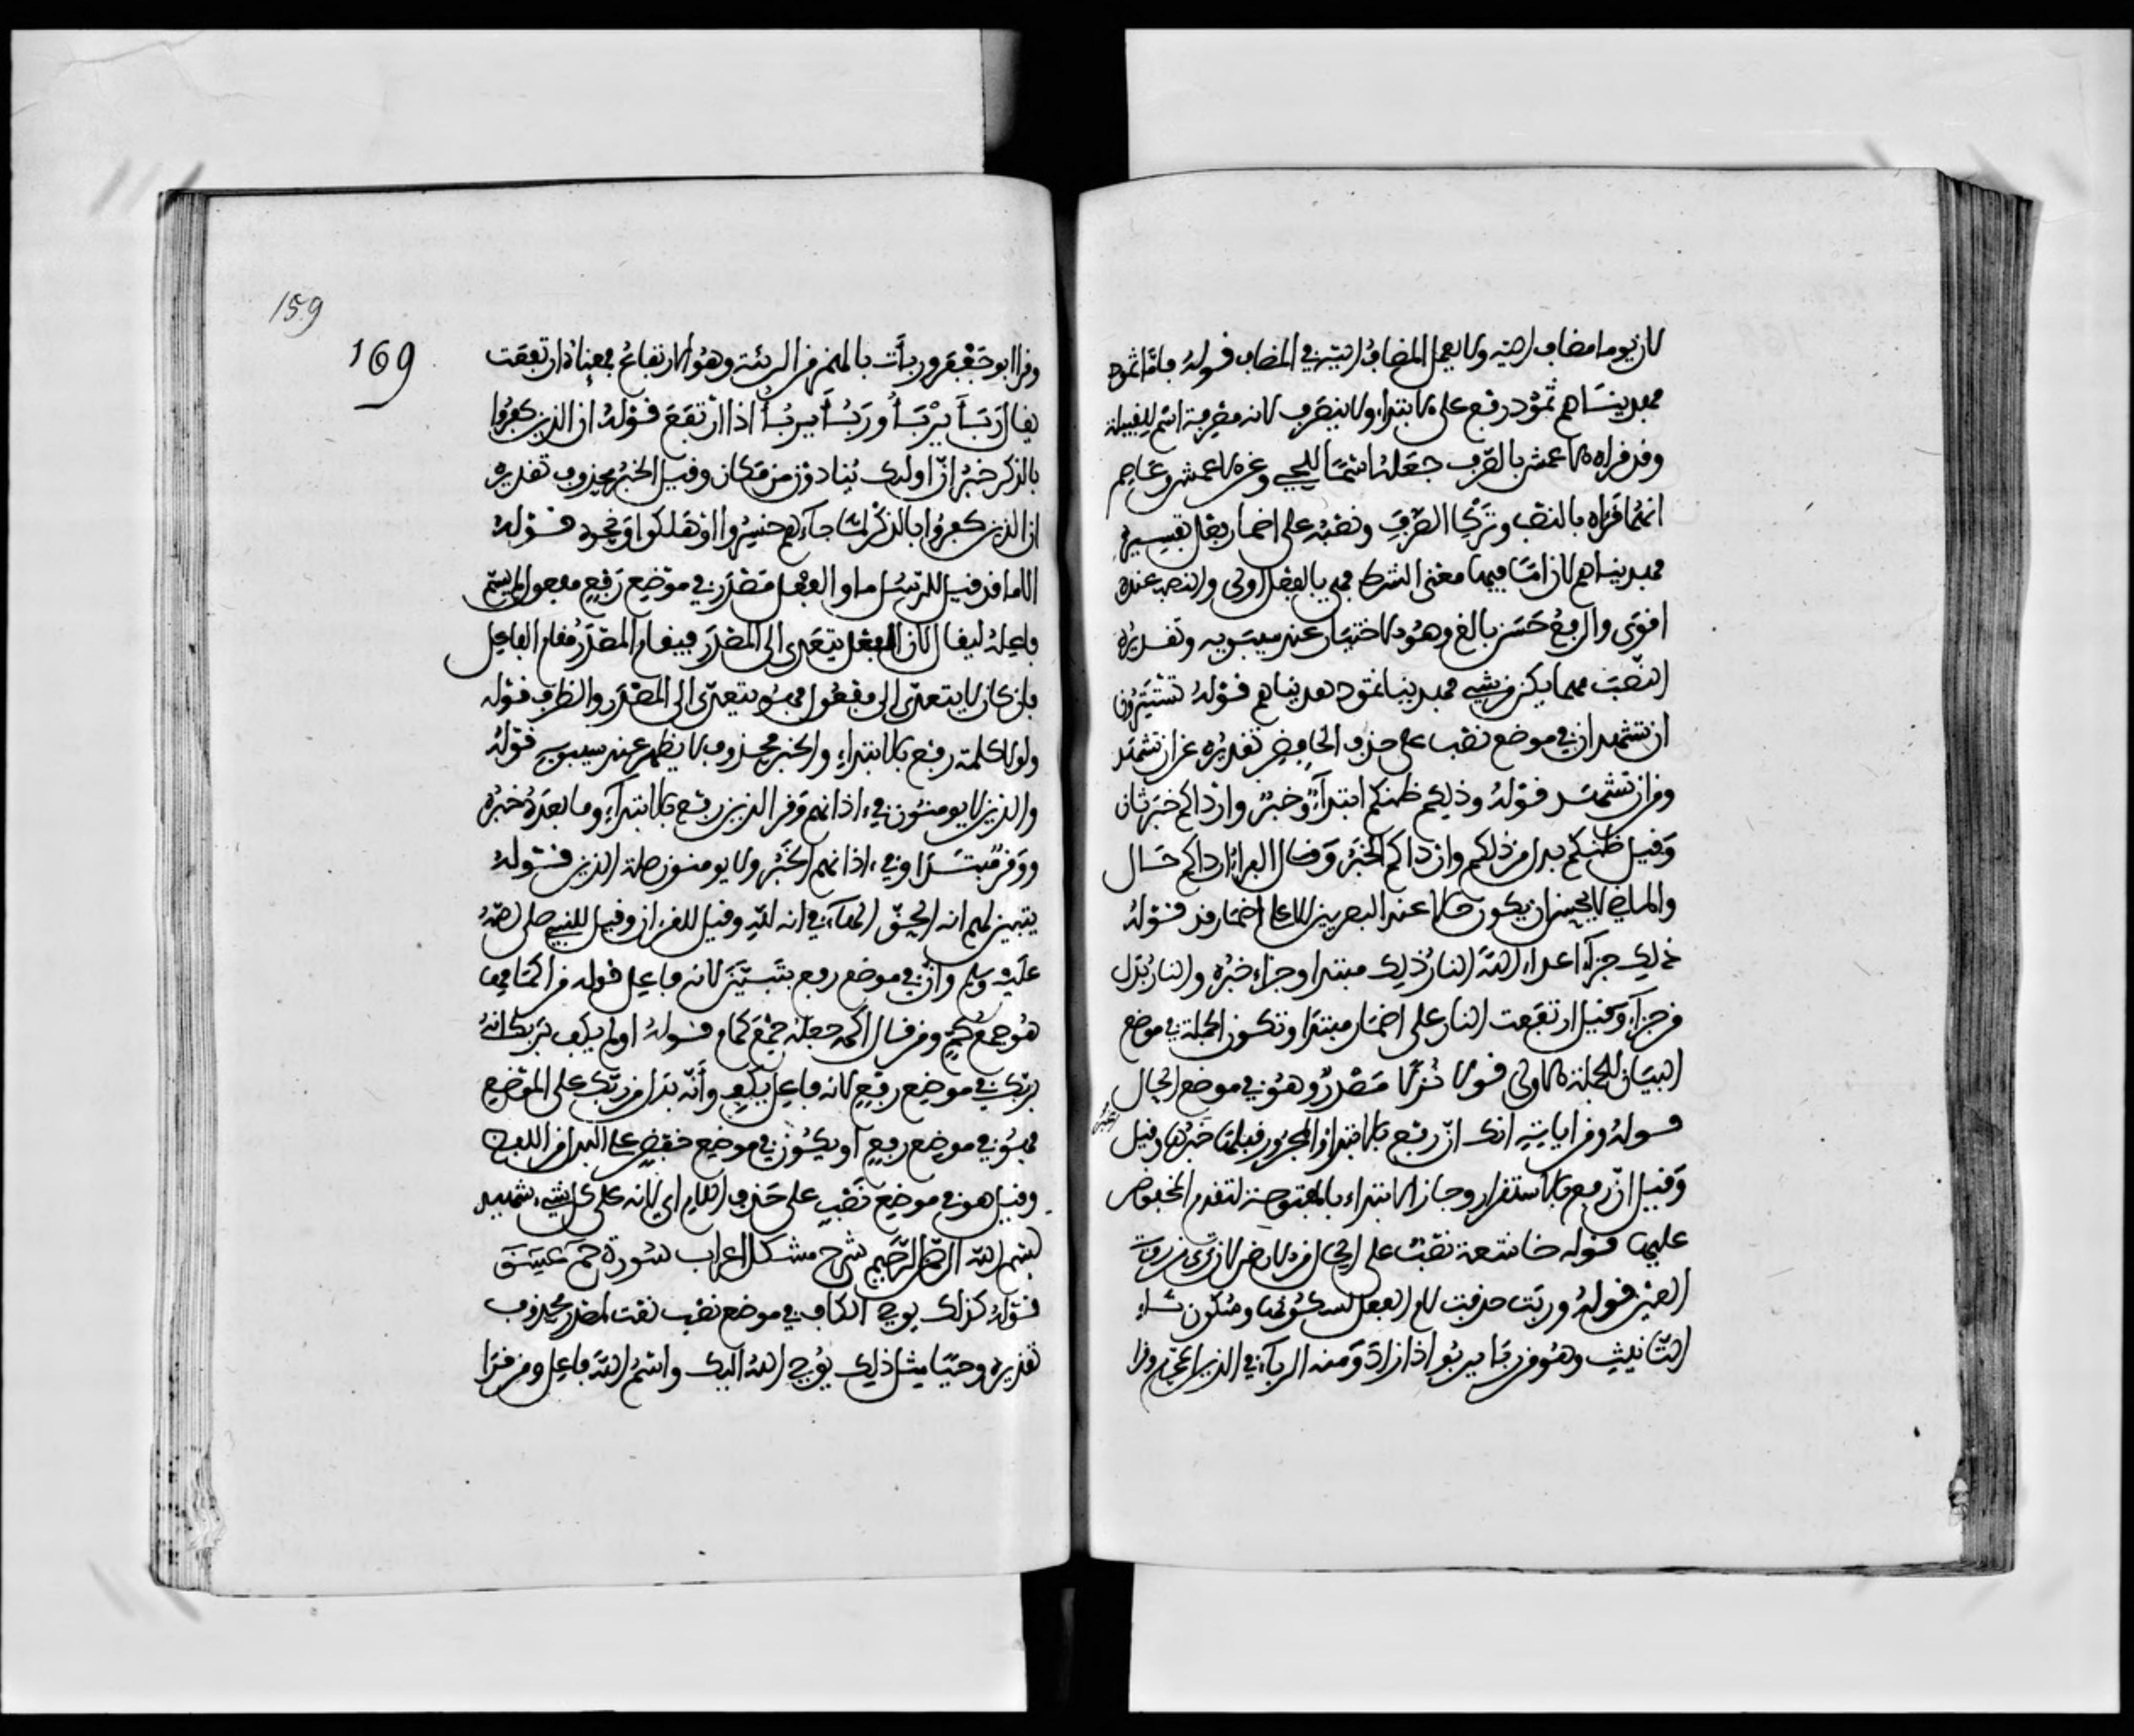 لان يوما مضاف اليه ولا يعمل المضاف اليه في المضاف قوله فاما ثمود
فهديناهم ثمود رفع على الابتداء ولا ينصرف لانه معرفة اسم للقبيلة
وقد قراه الاعمش بالصرف جعله اسما للحي وعن الاعمش وعاصم
انهما قراه بالنصب وترك الصرف ونصبه على اضمار فعل تفسيره
فهديناهم لان اما فيها معنى الشرط فهي بالفعل اولى والنصب عنده
اقوى والرفع حسن بالغ وهو الاختيار عند سيبويه وتقديره
النصب مهما يكن من شيء فهدينا ثمود هديناهم قوله تستترون
ان تشهد ان في موضع نصب على حذف الخافض تقديره عن ان تشهد
ومن ان تشهد قوله وذلكم ظنكم ابتداء وخبر وارداكم خبر ثان
وقيل ظنكم بدل من ذلكم وارداكم الخبر وقال الفراء ارداكم حال
والماضي لا يحسن ان يكون حالا عند البصريين الا على اضمار قد قوله
ذلك جزاء اعداء الله النار ذلك مبتدا وجزاء خبره والنار بدل
من جزاء وقيل ارتفعت النار على اضمار مبتدا وتكون الجملة في موضع
البيان للجملة الاولى قوله نزلا مصدر وهو في موضع الحال
قوله ومن اياته انك ان رفع بالابتداء والمجرور قبلها خبرها وقيل
وقيل ان رفع بالاستقرار وجاز الابتداء بالمفتوحة لتقدم المخفوض
عليها قوله خاشعة نصب على الحال من الارض لان ترى من رؤية
العين قوله وربت حذفت لام الفعل لسكونها وسكون تاء
التانيث وهو من ربا يربو اذا زاد ومنه الربا في الدين المحرم وقرا
159
169
وقرا ابو جعفر وربأت بالهمز من الربيئة وهو الارتفاع فمعناه ارتفعت
يقال ربأ يربأ وربؤ يربؤ اذا ارتفع قوله ان الذين كفروا
بالذكر خبر ان اولئك ينادون من مكان وقيل الخبر محذوف تقديره
ان الذين كفروا بالذكر لما جاءهم خسروا او هلكوا او نحوه قوله
الا ما قد قيل للرسل ما والفعل مصدر في موضع رفع مفعول لم يسم
فاعله ليقال لان الفعل يتعدى الى المصدر فيقام المصدر مقام الفاعل
فان كان لا يتعدى الى مفعول فهو يتعدى الى المصدر والظرف قوله
ولولا كلمة رفع بالابتداء والخبر محذوف لا يظهر عند سيبويه قوله
والذين لا يومنون في اذانهم وقر الذين رفع بالابتداء وما بعده خبره
ووقر مبتدا وفي اذانهم الخبر ولا يومنون صلة الذين قوله
يتبين لهم انه الحق الهاء في انه لله وقيل للقران وقيل للنبي صلى الله
عليه وسلم وان في موضع رفع بيتبين لانه فاعل قوله من اكمامها
هو جمع كم ومن قال اكمة جعله جمع كمام قوله اولم يكف بربك انه
بربك في موضع رفع لانه فاعل يكف وانه بدل من ربك على الموضع
فهو في موضع رفع او يكون في موضع خفض على البدل من اللفظ
وقيل هو في موضع نصب على حذف اللام اي لانه على كل شيء شهيد
بسم الله الرحمن الرحيم شرح مشكل اعراب سورة حم عسق
قوله كذلك يوحي الكاف في موضع نصب نعت لمصدر محذوف
تقديره وحيا مثل ذلك يوحي الله اليك واسم الله فاعل ومن قرا